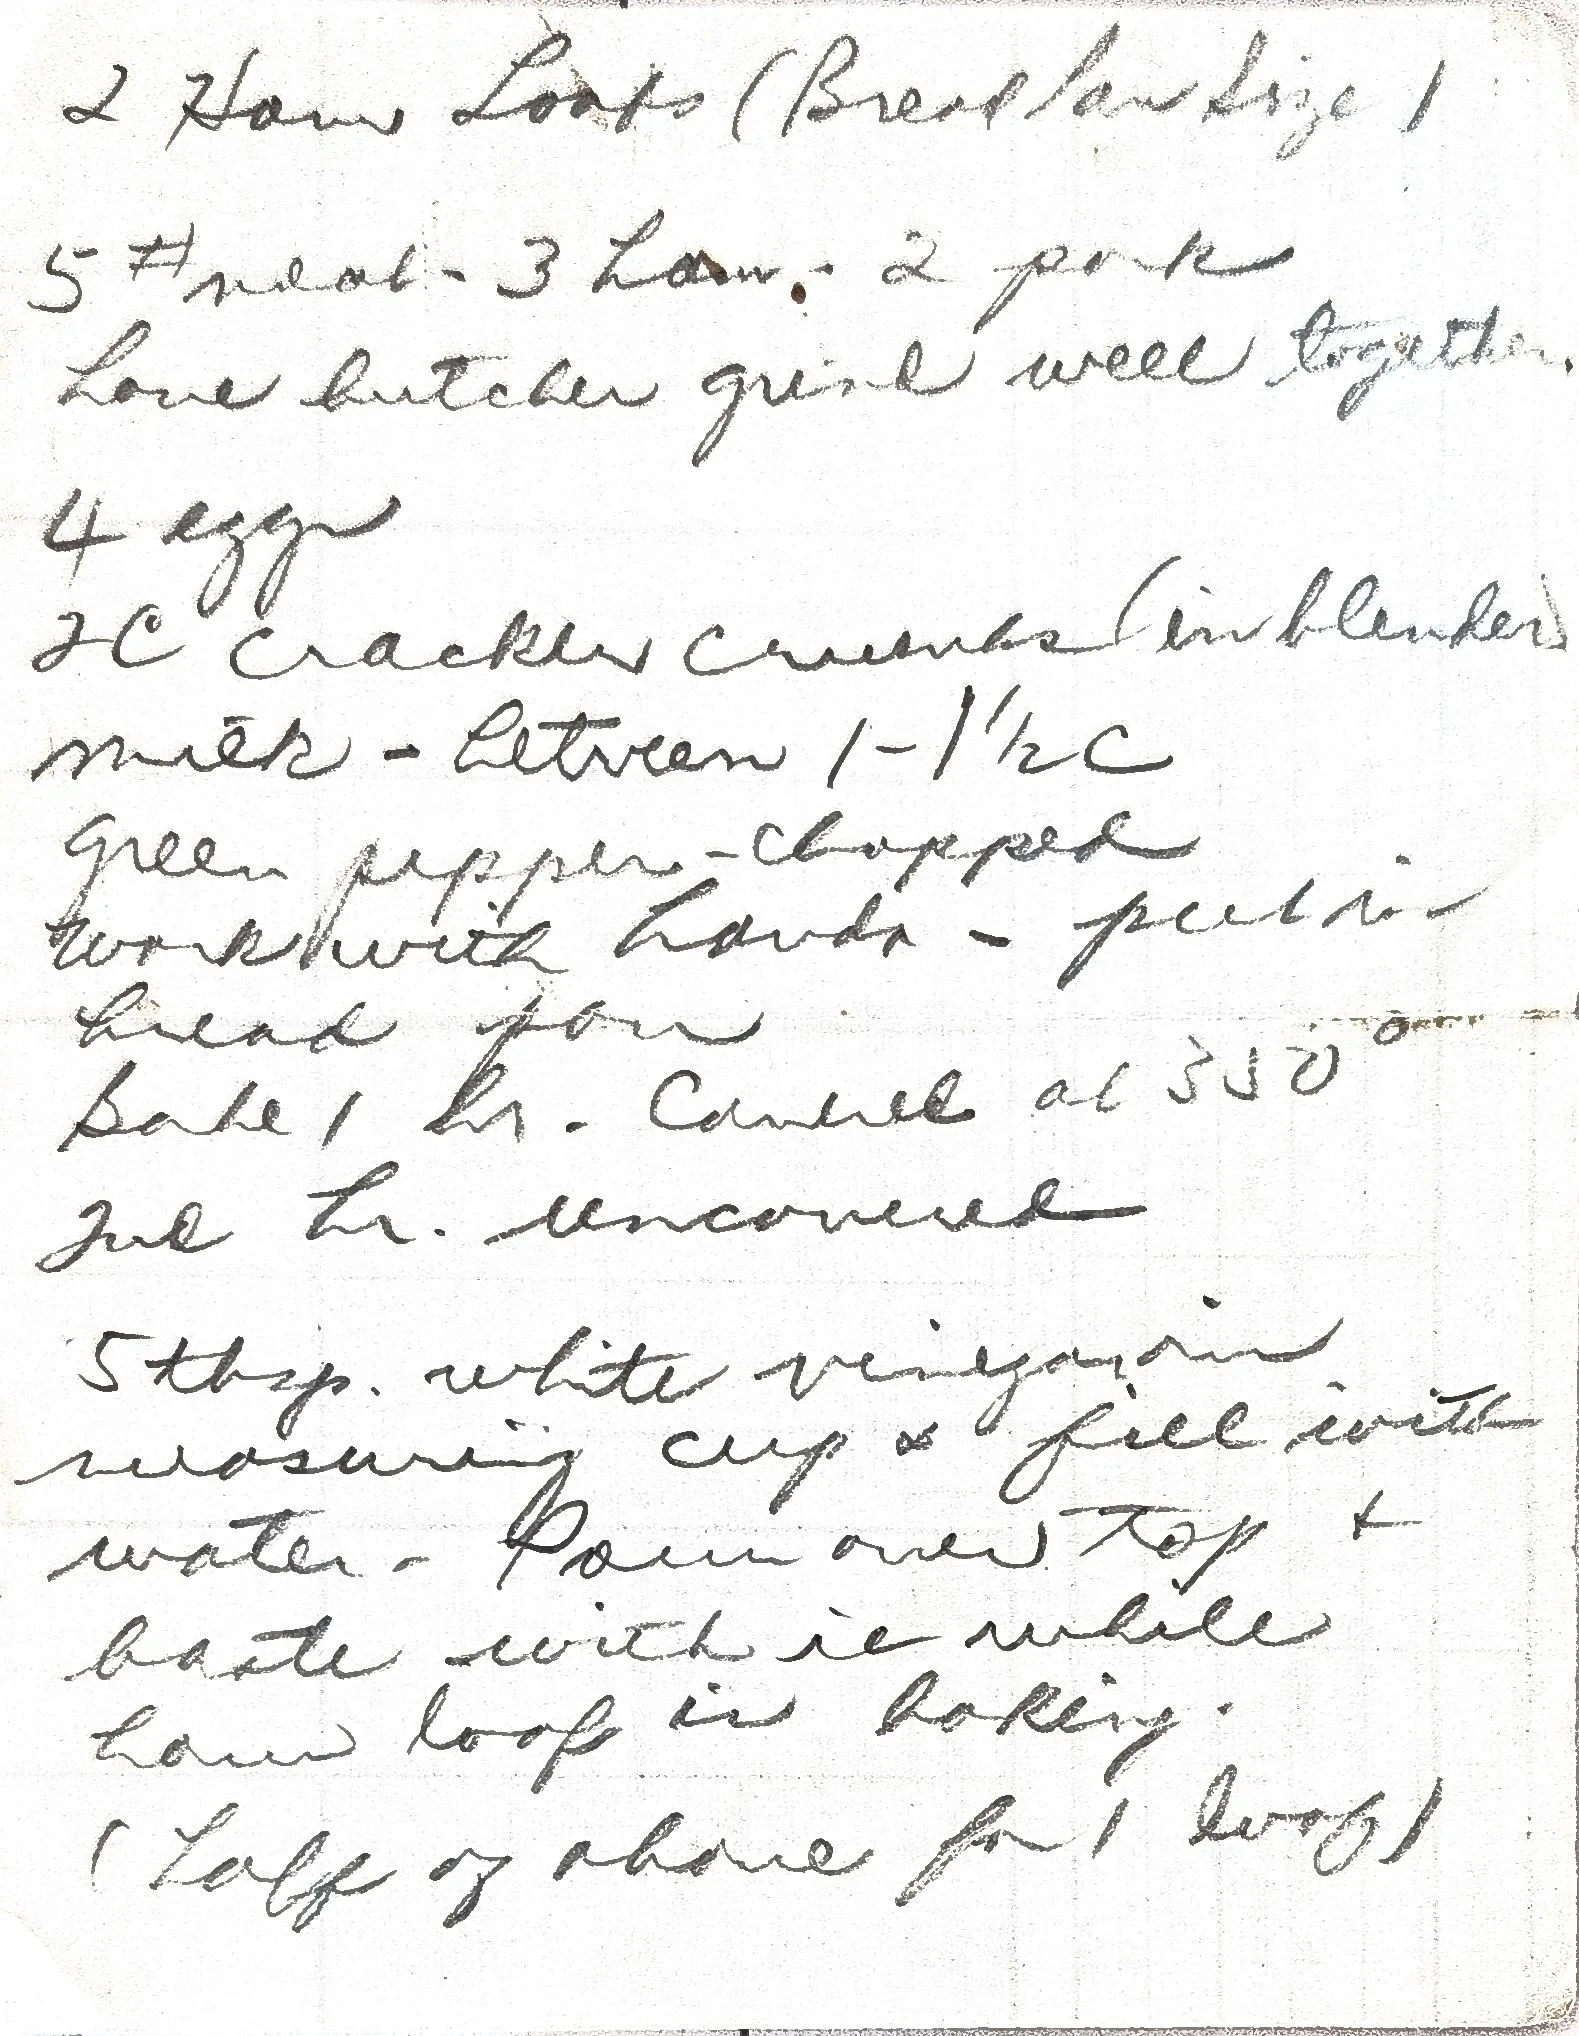 2 Ham Loafs (Bread pan size)
5 # meat - 3 ham - 2 pork
have butcher grind well together.
4 eggs
2C cracker crumbs (in blender)
milk - between 1 - 1 1/2 C
Green pepper - chopped
work with hands - put in
bread pan
Bake 1 hr. Covered at 350°
2nd hr. uncovered
5 tbsp. white vinegar in
measuring cup & fill with
water - Pour over top +
baste with it while
ham loaf is baking.
(Half of above for 1 loaf)